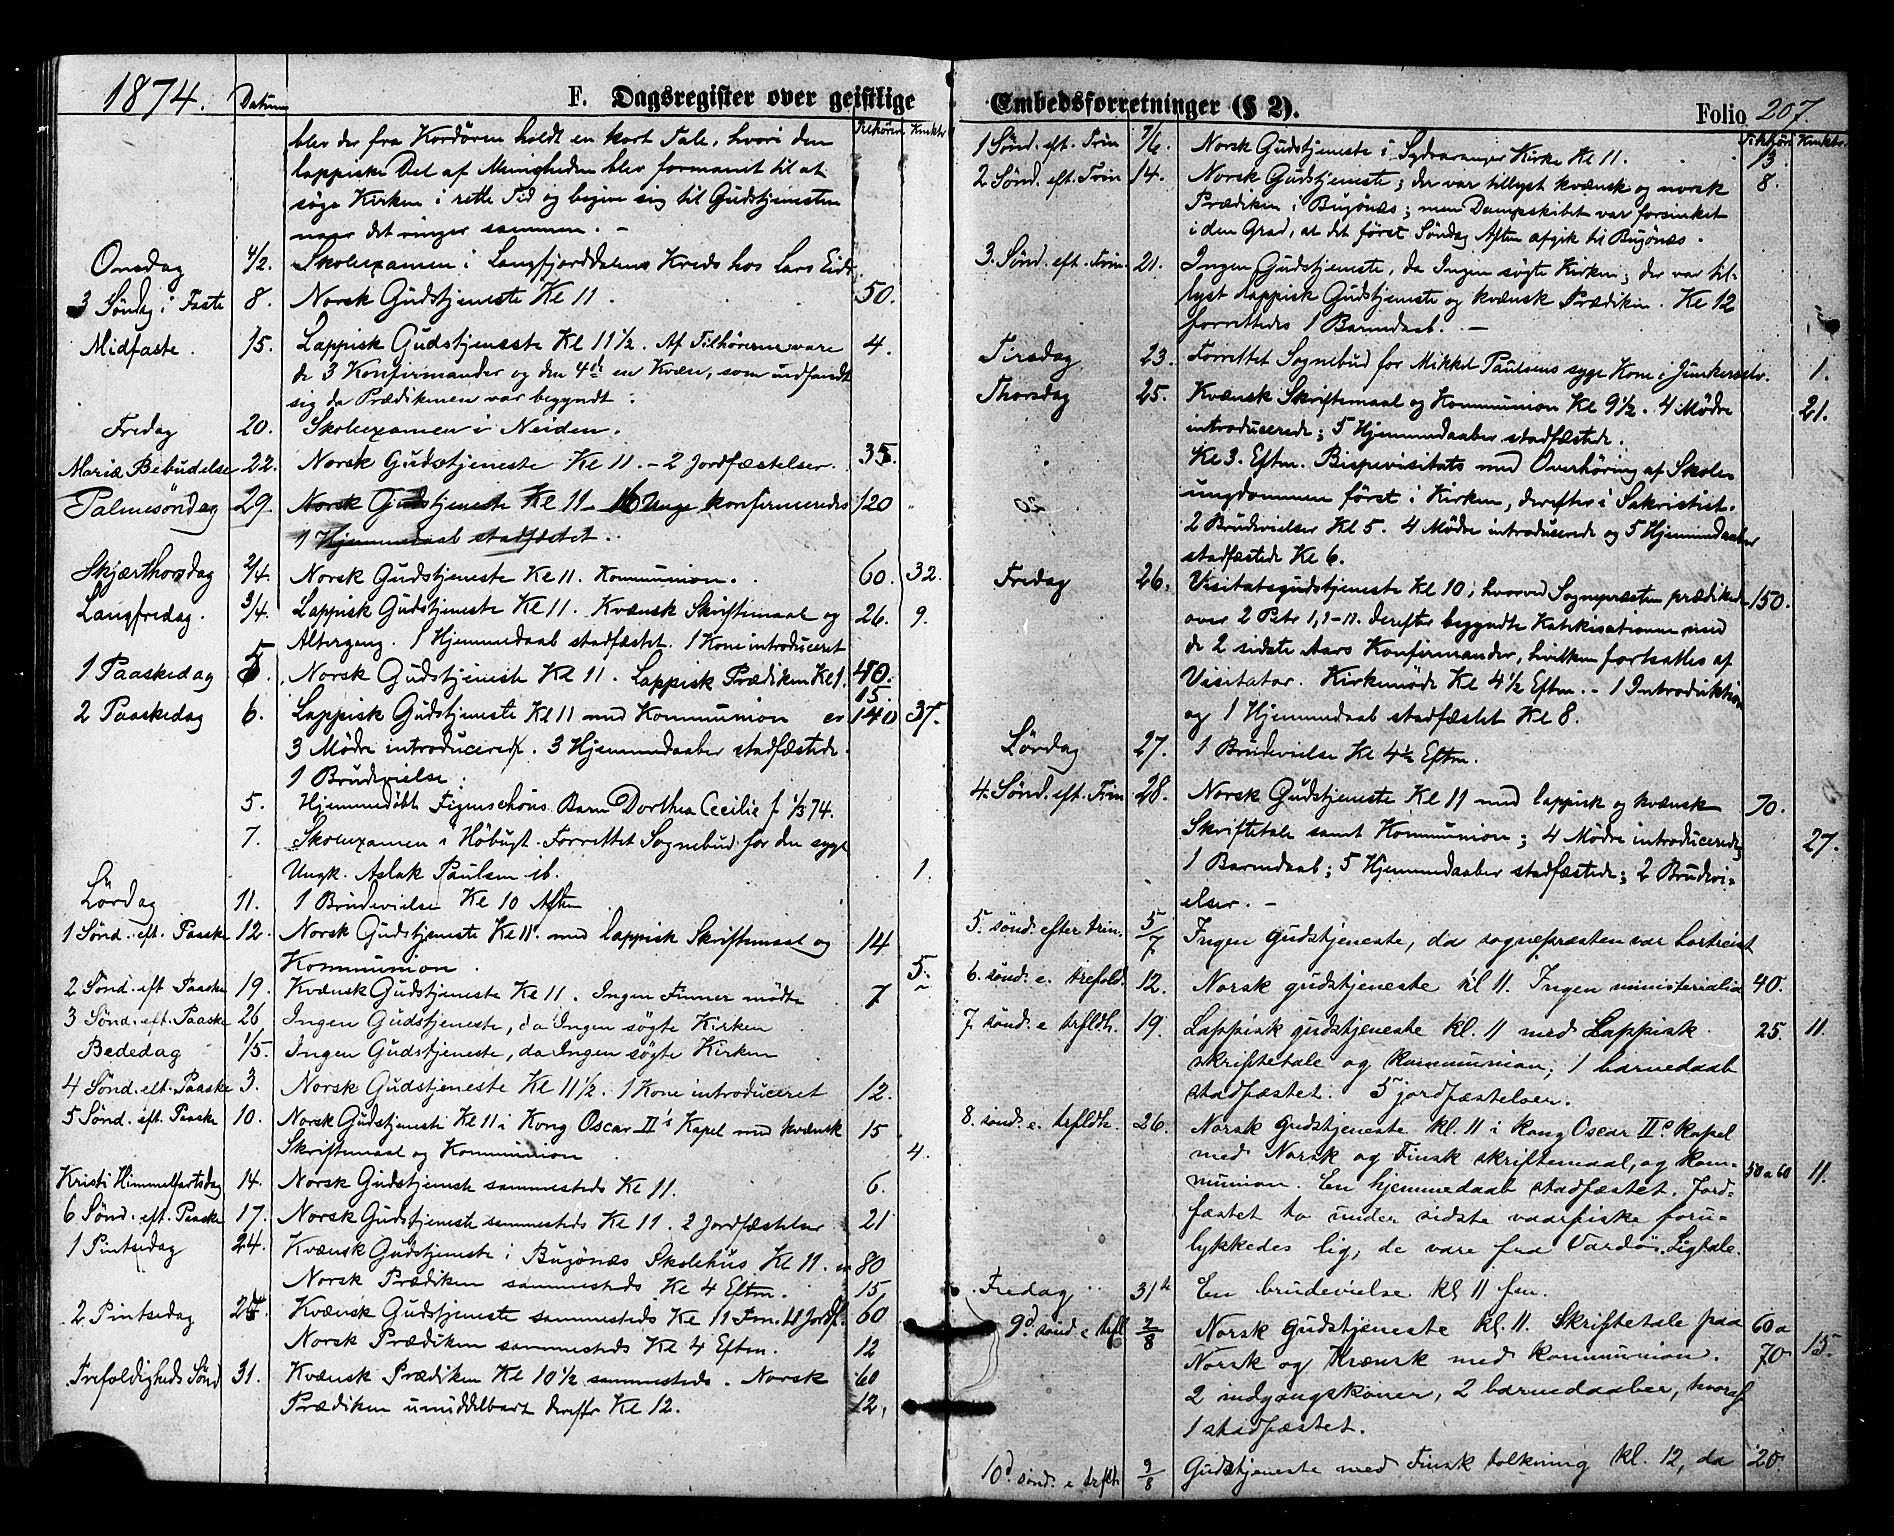 1874. Datum F. Dagsregister over geistlige
Tilhörer Kmktr
blev der fra Kordören holdt en kort Tale, hvori den
lappiske Del af Menigheden blev formanet til at
söge Kirken i rette Tid og begive sig til Gudstjenesten
naar det ringer sammen. –
Onsdag 4/2. Skolexamen i Langfjorddalens Kreds hos Lars Eide.
3 Söndag i Faste 8. Norsk Gudstjeneste Kl 11. 50.
Midfaste. 15. Lappisk Gudstjeneste Kl 11 1/2. Af Tilhörerne vare 4.
de 3 Konfirmander og den 4de en Kvæn, som indfandt
sig da Prædikenen var begyndt.
Fredag 20. Skolexamen i Neiden.
Mariæ Bebudelse 22. Norsk Gudstjeneste Kl 11. – 2 Jordfæstelser. 35.
Palmesöndag 29. Norsk Gudstjeneste Kl 11 – 16 Unge konfirmeredes 120
1 Hjemmedaab stadfæstet.
Skjærthorsdag 2/4. Norsk Gudstjeneste Kl 11. Kommunion. 60. 32.
Langfredag. 3/4. Lappisk Gudstjeneste Kl 11. Kvænsk Skriftemaal og 26. 9.
Altergang. 1 Hjemmedaab stadfæstet. 1 Kone introduceret
1 Paaskedag 5. Norsk Gudstjeneste Kl 11. Lappisk Prædiken Kl 1. 40.
15.
2 Paaskedag 6. Lappisk Gudstjeneste Kl 11 med Kommunion 140 37.
3 Mödre introducerede. 3 Hjemmedaaber stadfæstede.
1 Brudevielse.
5. Hjemmedöbt Figenschous Barn Dorthea Cecilie f. 1/3 74.
7. Skolexamen i Höbugt. Forrettet Sognebud for den syge
Ungk. Aslak Paulsen ib. 1.
Lördag 11. 1 Brudevielse Kl 10 Aften
1 Sönd. eft. Paaske 12. Norsk Gudstjeneste Kl 11. med lappisk Skriftemaal og 14
Kommunion. 5.
2 Sönd. eft Paaske 19. Kvænsk Gudstjeneste Kl 11. Ingen Finner mödte 7
3 Sönd. eft. Paaske 26 Ingen Gudstjeneste, da Ingen sögte Kirken
Bededag 1/5. Ingen Gudstjeneste, da Ingen sögte Kirken
4 Sönd. eft. Paaske 3. Norsk Gudstjeneste Kl 11 1/2. 1 Kone introduceret 12.
5 Sönd. eft. Paaske 10. Norsk Gudstjeneste Kl 11 i Kong Oscar II's Kapel med kvænsk 15
Skriftemaal og Kommunion. 4.
Kristi Himmelfartsdag 14. Norsk Gudstjeneste sammesteds Kl 11. 6.
6 Sönd. eft. Paaske 17. Norsk Gudstjeneste sammesteds Kl 11. 2 Jordfæstelser 21
1 Pintsedag 24. Kvænsk Gudstjeneste i Bugönæs Skolehus Kl 11. 80
Norsk Prædiken sammesteds Kl 4 Eftm. 15
2 Pintsedag Kvænsk Gudstjeneste sammesteds Kl 11 Fm. 60
Norsk Prædiken sammesteds Kl 4 Eftm. 12
Trefoldigheds Sönd. 31. Kvænsk Prædiken Kl 10 1/2 sammesteds. Norsk 60
Prædiken umiddelbart derefter Kl 12. 12.
Embedsforretninger (§ 2). Folio 207.
Tilhörer Kmktr.
1 Sönd. eft. Trin 7/6. Norsk Gudstjeneste i Sydvaranger Kirke Kl 11. 13
2 Sönd. eft. Trin 14. Norsk Gudstjeneste; der var tillyst kvænsk og norsk 8.
Prædiken i Bugönæs; men Dampskibet var forsinket
i den Grad, at det först Söndag Aften afgik til Bugönæs.
3. Sönd. eft. Trin. 21. Ingen Gudstjeneste, da Ingen sögte Kirken; der var til-
lyst lappisk Gudstjeneste og kvænsk Prædiken. Kl 12
forrettedes 1 Barnedaab. –
Tirsdag 23. Forrettet Sognebud for Mikkel Paulsens syge Kone i Junkerselv. 1.
Thorsdag 25. Kvænsk Skriftemaal og Kommunion Kl 9 1/2. 4 Mödre 21.
introducerede; 5 Hjemmedaaber stadfæstede.
Kl 3. Eftm. Bispevisitats med Overhöring af Skole-
ungdommen först i Kirken, derefter i Sakristiet.
2 Brudevielser Kl 5. 4 Mödre introducerede og 5 Hjemmedaaber
stadfæstede Kl 6.
Fredag 26. Visitatsgudstjeneste Kl 10, hvorved Sognepræsten prædikede 150.
over 2 Petr 1, 1-11. derefter begyndte Katekisationen med
de 2 sidste Aars Konfirmander, hvilken fortsattes af
Visitator. Kirkemöde Kl 4 1/2 Eftm. – 1 Introduktion
og 1 Hjemmedaab stadfæstet Kl 8.
Lördag 27. 1 Brudevielse Kl 4 1/2 Eftm.
4. Sönd. eft. Trin 28. Norsk Gudstjeneste Kl 11 med lappisk og kvænsk 70.
Skriftetale samt Kommunion; 4 Mödre introducerede; 27.
1 Barnedaab; 5 Hjemmedaaber stadfæstede; 2 Brudevi-
elser. –
5. sönd. efter trin. 5/7 Ingen gudstjeneste, da sognepræsten var bortreist
6. sönd. e. trefold. 12. Norsk gudstjeneste kl 11. Ingen ministerialia 40.
7. sönd. e trfldh. 19. Lappisk gudstjeneste kl. 11 med Lappisk 25. 11.
skriftetale og kommunion; 1 barnedaab
stadfæstet. 5 jordfæstelser.
8. sönd. e. trfldh. 26. Norsk gudstjeneste kl. 11 i kong Oscar IIs kapel
med Norsk og Finsk skriftemaal, og kom-
munion. En hjemmedaab stadfæstet. Jord- 50 a 60 11.
fæstet to under sidste vaarfiske foru-
lykkedes lig; de vare fra Vardö. Ligtale.
Fredag 31te En brudevielse kl 11 fm.
9d. sönd e trfl 2/8 Norsk gudstjeneste kl. 11. Skriftetale paa 60 a
Norsk og Kvænsk med kommunion. 70 15.
2 indgangskoner, 2 barnedaaber, hvoraf
1 stadfæstet.
10d. sönd. e trflt. 9/8 Gudstjeneste med Finsk tolkning kl. 12, da 20